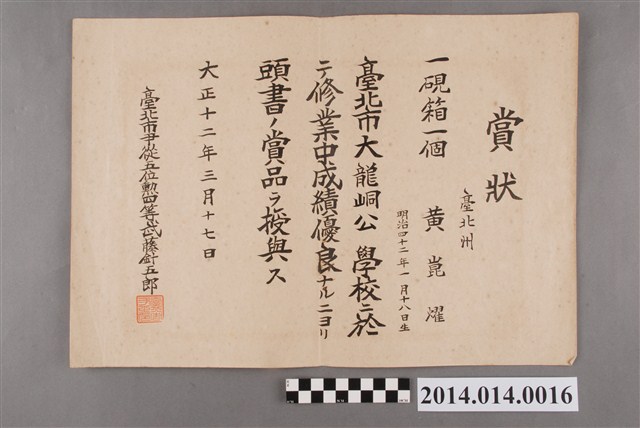 賞狀
臺北州
一硯箱一個 黃崑燿
明治四十二年一月十八日生
臺北市大龍峒公學校ニ於
テ修業中成績優良ナルニヨリ
頭書ノ賞品ヲ授與ス
大正十二年三月十七日
臺北市尹從五位勳四等武藤針五郎
2014.014.0016